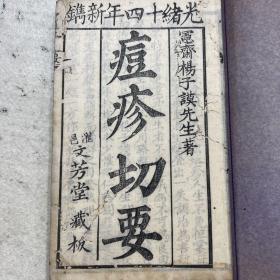 光緒十四年新鐫
憲齋楊子謨先生著
痘疹切要
灌邑文芳堂藏板